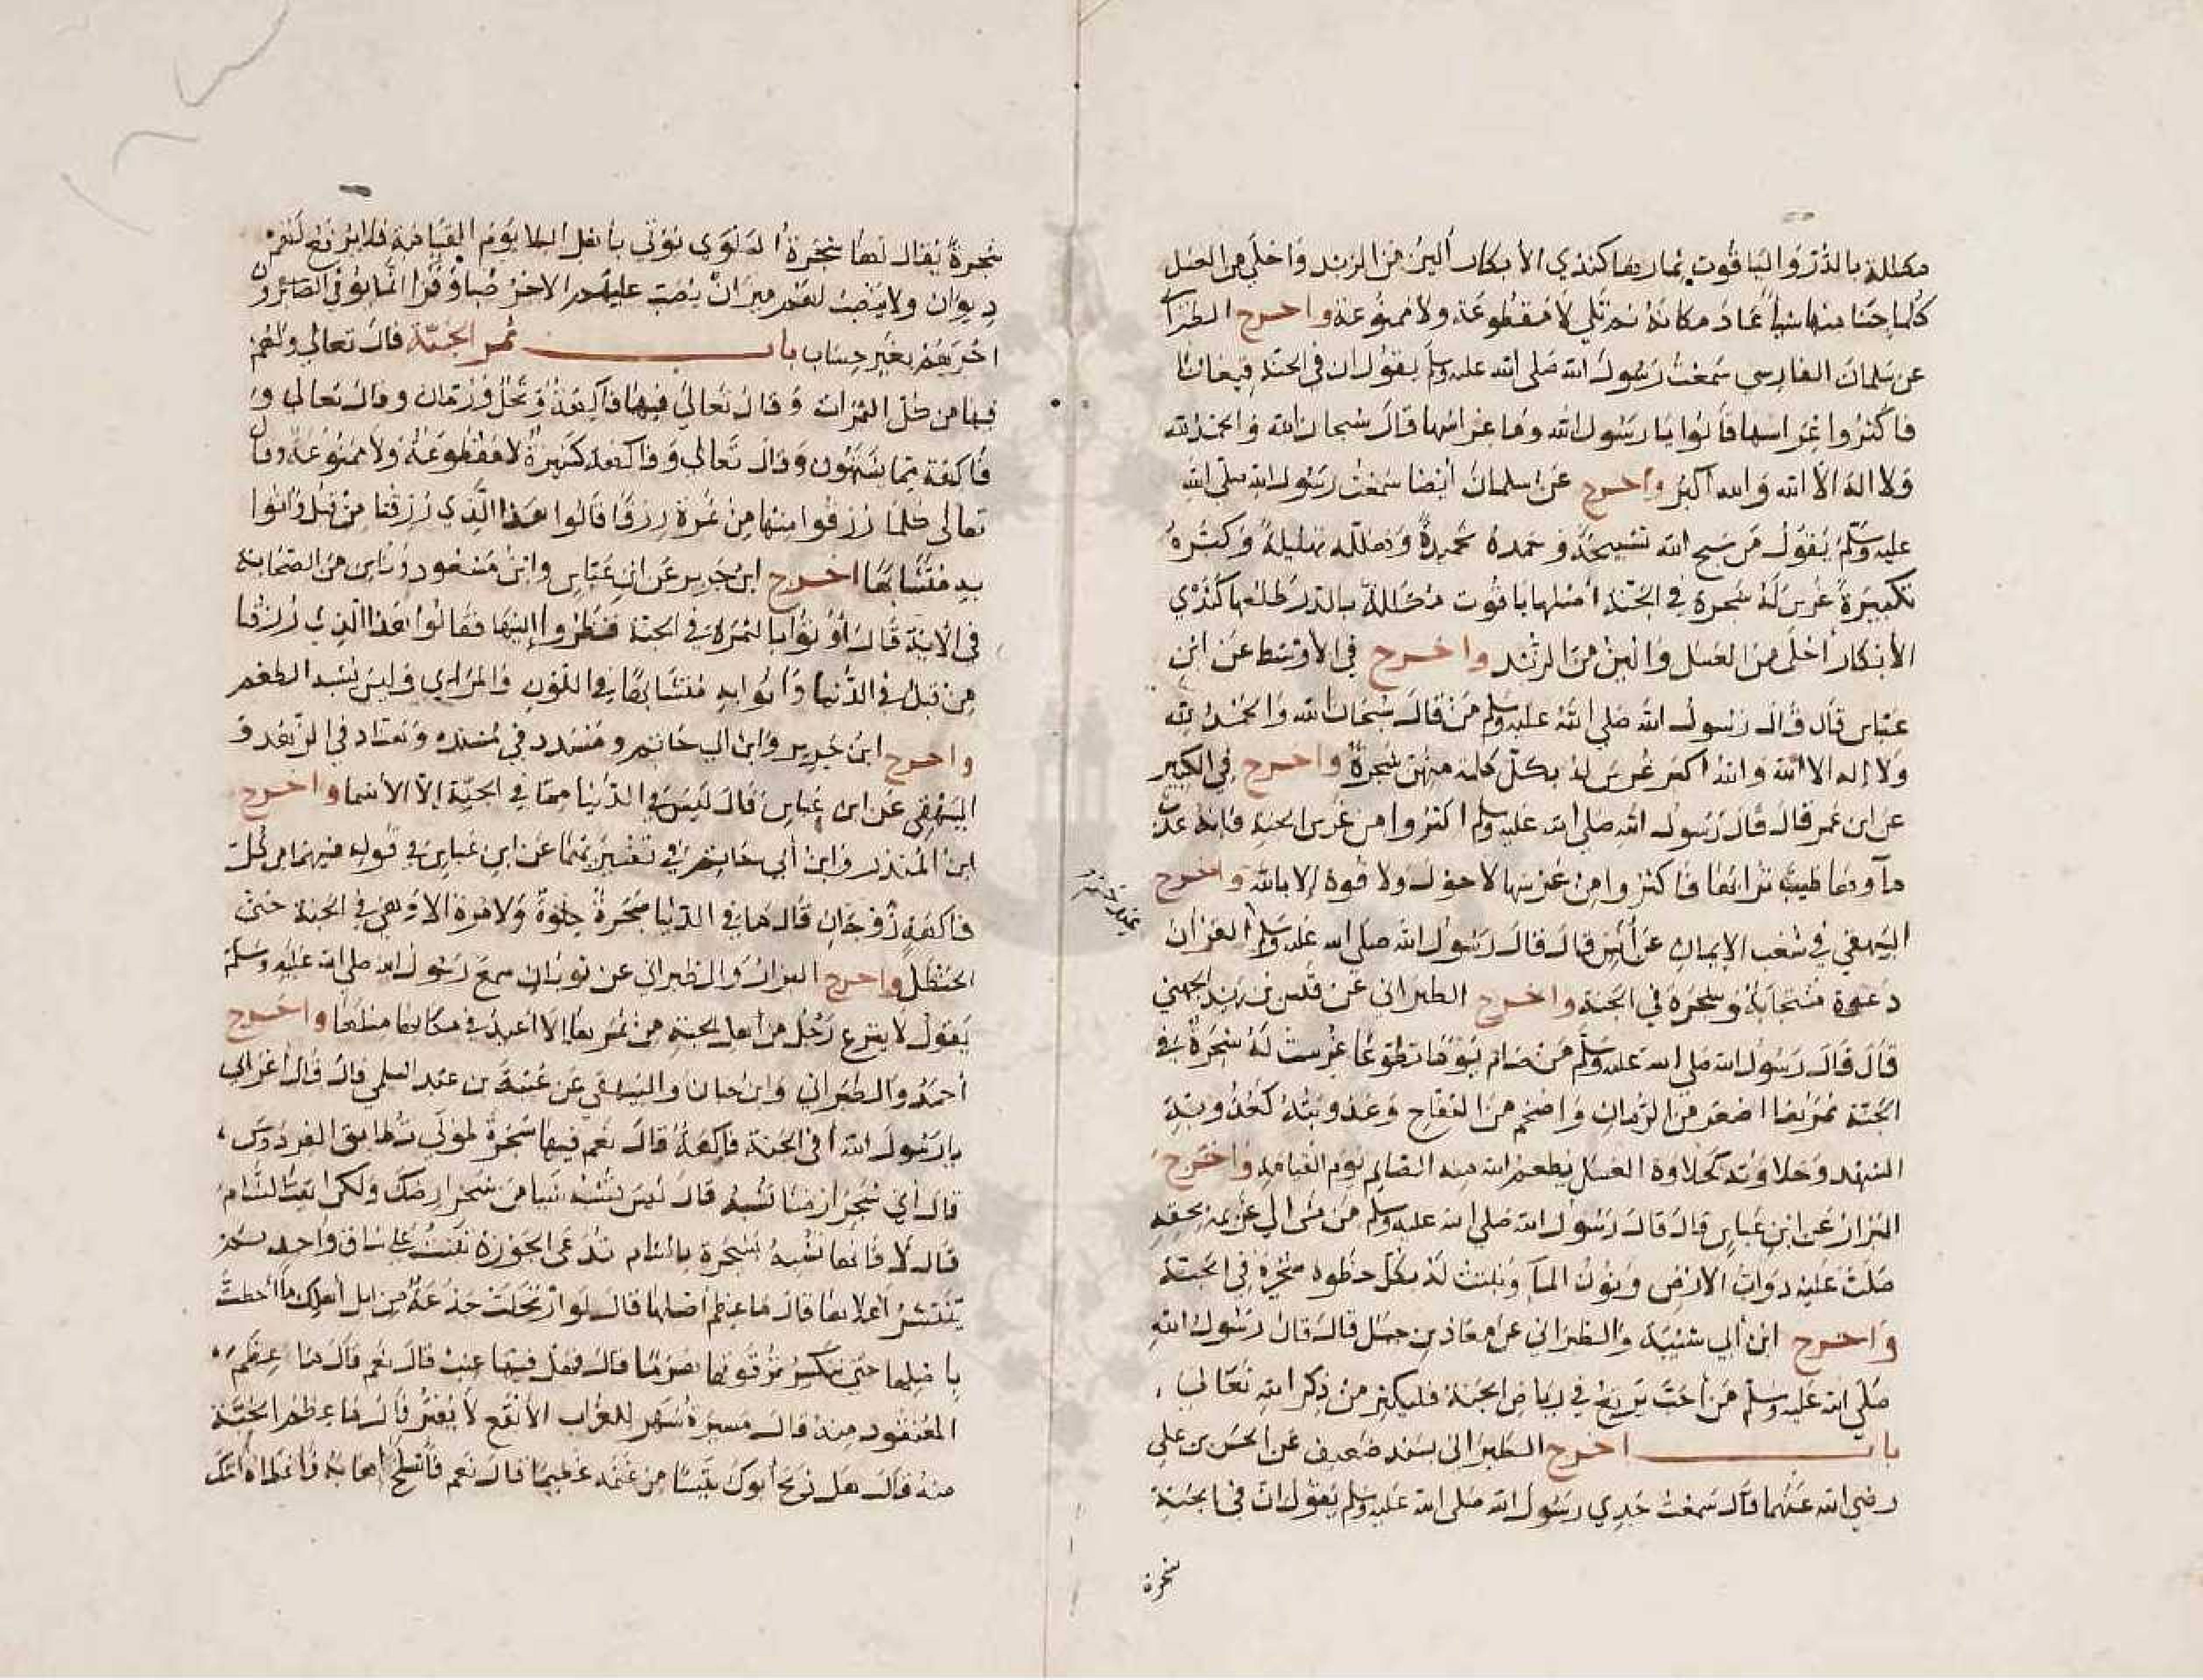 مكللة بالدر والياقوت ثمارها كثدي الأبكار ألين من الزبد وأحلى من العسل
كلما جنا منها شيأ عاد مكانه ثم تلى لا مقطوعة ولا ممنوعة واخرج الطبرا
عن سلمان الفارسي سمعت رسول الله صلى الله عليه وسلم يقول ان في الجنة قيعانا
فاكثروا غراسها قالوا يا رسول الله وما غراسها قال سبحان الله والحمد لله
ولا اله الا الله والله اكبر واخرج عن سلمان أيضا سمعت رسول الله صلى الله
عليه وسلم يقول من سبح الله تسبيحة وحمده تحميدة وهلله تهليلة وكبره
تكبيرة غرس له شجرة في الجنة اصلها ياقوت مكللة بالدر طلعها كثدي
الأبكار أحلى من العسل وألين من الزبد واخرج في الأوسط عن ابن
عباس قال قال رسول الله صلى الله عليه وسلم من قال سبحان الله والحمد لله
ولا إله الا الله والله اكبر غرس له بكل كلمة منهن شجرة واخرج في الكبير
عن ابن عمر قال قال رسول الله صلى الله عليه وسلم اكثروا من غرس الجنة فانه عذب
ماؤها طيب ترابها فاكثروا من غرسها لا حول ولا قوة إلا بالله واخرج
البيهقي في شعب الإيمان عن أنس قال قال رسول الله صلى الله عليه وسلم القران
دعوة مستجابة وشجرة في الجنة واخرج الطبراني عن قيس بن زيد الجهني
قال قال رسول الله صلى الله عليه وسلم من صام يوما تطوعا غرست له شجرة في
الجنة ثمرتها اصغر من الرمان واضخم من التفاح وعذوبته كعذوبة
الشهد وحلاوته كحلاوة العسل يطعم الله منه الصايم يوم القيامة واخرج
البزار عن ابن عباس قال قال رسول الله صلى الله عليه وسلم من مشى الي غريمه بحقه
صلت عليه دواب الارض ونون الماء ونبتت له بكل خطوة شجرة في الجنة
واخرج ابن أبي شيبة والطبراني عن معاذ بن جبل قال قال رسول الله
صلى الله عليه وسلم من أحب يرتع في رياض الجنة فليكثر من ذكر الله تعالى
باب اخرج الطبراني بسند ضعيف عن الحسن بن علي
رضي الله عنهما قال سمعت جدي رسول الله صلى الله عليه وسلم يقول ان في الجنة
شجرة
شجرة يقال لها شجرة البلوى يؤتى بأهل البلا يوم القيامة فلا يرفع لهم
ديوان ولا ينصب لهم ميزان يصب عليهم الاجر صبا وقرا انما يوفى الصابرون
اجرهم بغير حساب باب ثمر الجنة قال تعالى ولهم
فيها من كل الثمرات وقال تعالى فيهما فاكهة ونخل ورمان وقال تعالى و
فاكهة مما يشتهون وقال تعالى وفاكهة كثيرة لا مقطوعة ولا ممنوعة وقال
تعالى كلما رزقوا منها من ثمرة رزقا قالوا هذا الذي رزقنا من قبل وأتوا
به متشابها اخرج ابن جرير عن ابن عباس وابن مسعود وناس من الصحابة
في الآية قال أوتوا بالثمرة في الجنة فنظروا إليها فقالوا هذا الذي رزقنا
من قبل في الدنيا وأتوا به متشابها في اللون والمراي وليس يشبه الطعم
واخرج ابن جرير وابن ابي حاتم ومسدد في مسنده وهناد في الزهد و
البيهقي عن ابن عباس قال ليس في الدنيا مما في الجنة إلا الأسما واخرج
ابن المنذر وابن أبي حاتم في تفسيريهما عن ابن عباس في قوله فيهما من كل
فاكهة زوجان قال ما في الدنيا شجرة حلوة ولا مرة الا وهي في الجنة حتى
الحنظل واخرج البزار والطبراني عن ثوبان سمع رسول الله صلى الله عليه وسلم
يقول لا ينزع رجل من أهل الجنة من ثمرها إلا اعيد في مكانها مثلها واخرج
أحمد والطبراني وابن حبان والبيهقي عن عتبة بن عبد السلمي قال قال أعرابي
يا رسول الله أفي الجنة فاكهة قال نعم فيها شجرة طوبى تطابق الفردوس
قال أي شجر ارضنا تشبه قال ليس تشبه شيأ من شجر ارضك ولكن أتيت الشام
قال لا فانها تشبه شجرة بالشام تدعى الجوزة تنبت على ساق واحد ثم
ينتشر أعلاها قال ما عظم أصلها قال لو ارتحلت جذعة من ابل أهلك ما أحطت
بأصلها حتى تنكسر ترقوتها هرما قال فهل فيها عنب قال نعم قال ما عظم
العنقود منه قال مسيرة شهر للغراب الأبقع لا يفتر قال ما عظم الحبة
منه قال هل ذبح أبوك تيسا من غنمه عظيما قال نعم فأسلخ إهابه فأعطاه امك